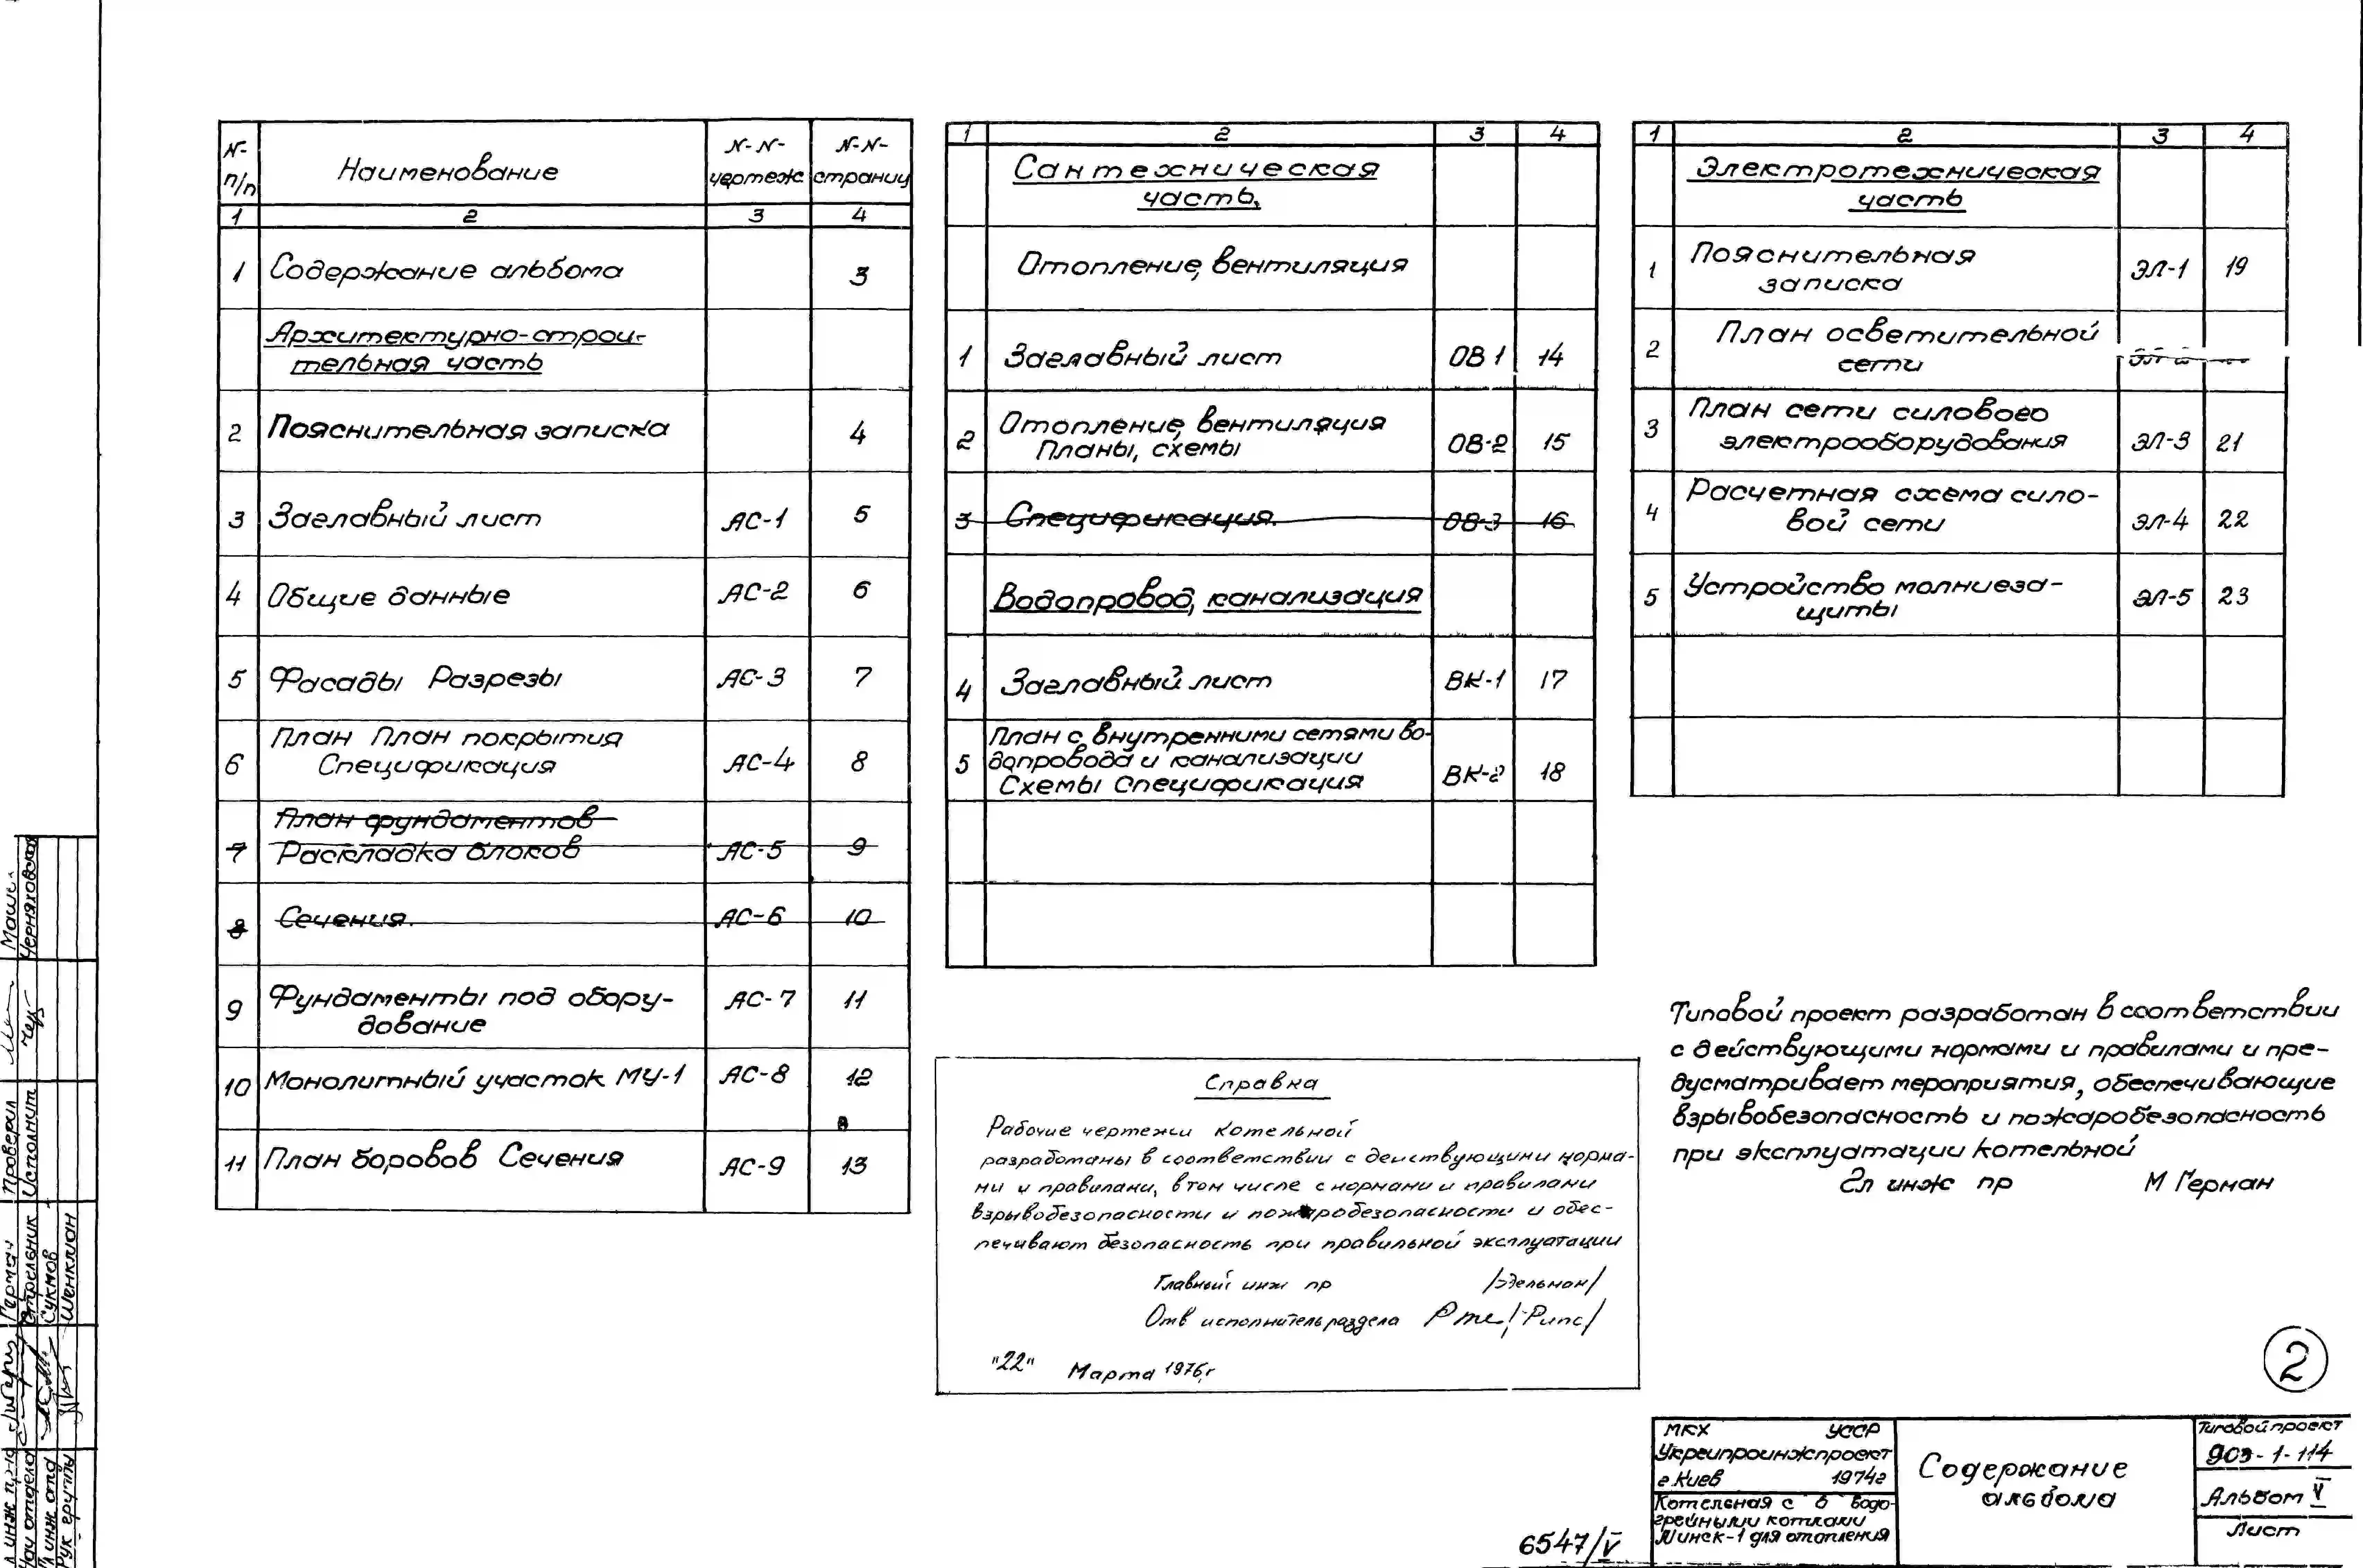 N- п/п Наименование N-N- чертеж N-N- страниц
1 2 3 4
1 Содержание альбома 3
Архитектурно-строи-
тельная часть
2 Пояснительная записка 4
3 Заглавный лист АС-1 5
4 Общие данные АС-2 6
5 Фасады Разрезы АС-3 7
6 План План покрытия АС-4 8
Спецификация
План фундаментов
7 Раскладка блоков АС-5 9
8 Сечения. АС-6 10
9 Фундаменты под обору- АС-7 11
дование
10 Монолитный участок МУ-1 АС-8 12
11 План боровов Сечения АС-9 13
1 2 3 4
Сантехническая
часть,
Отопление, вентиляция
1 Заглавный лист ОВ 1 14
2 Отопление, вентиляция ОВ-2 15
Планы, схемы
3 Спецификация. ОВ-3 16
Водопровод, канализация
4 Заглавный лист ВК-1 17
План с внутренними сетями во-
5 допровода и канализации ВК-2 18
Схемы Спецификация
1 2 3 4
Электротехническая
часть
1 Пояснительная ЭЛ-1 19
записка
2 План осветительной
сети
3 План сети силового
электрооборудования ЭЛ-3 21
4 Расчетная схема сило-
вой сети ЭЛ-4 22
5 Устройство молниеза- ЭЛ-5 23
щиты
Справка
Рабочие чертежи котельной
разработаны в соответствии с действующими норма-
ми и правилами, в том числе с нормами и правилами
взрывобезопасности и пожаробезопасности и обес-
печивают безопасность при правильной эксплуатации
Главный инж пр /Эдельман/
Отв исполнитель раздела /Рипс/
"22" Марта 1976г
Типовой проект разработан в соответствии
с действующими нормами и правилами и пре-
дусматривает мероприятия, обеспечивающие
взрывобезопасность и пожаробезопасность
при эксплуатации котельной
Гл инж пр М Герман
2
МКХ УССР
Укргипроинжпроект
г.Киев 1974г
Котельная с 6 водо-
грейными котлами
Минск-1 для отопления
Содержание
альбома
Типовой проект
903-1-114
Альбом V
Лист
6547/V
Гл инж пр-та Герман
Нач отдела Стрельник
Гл инж отд Сукмов
Рук группы Шенкман
Проверил
Исполнит Черняховская